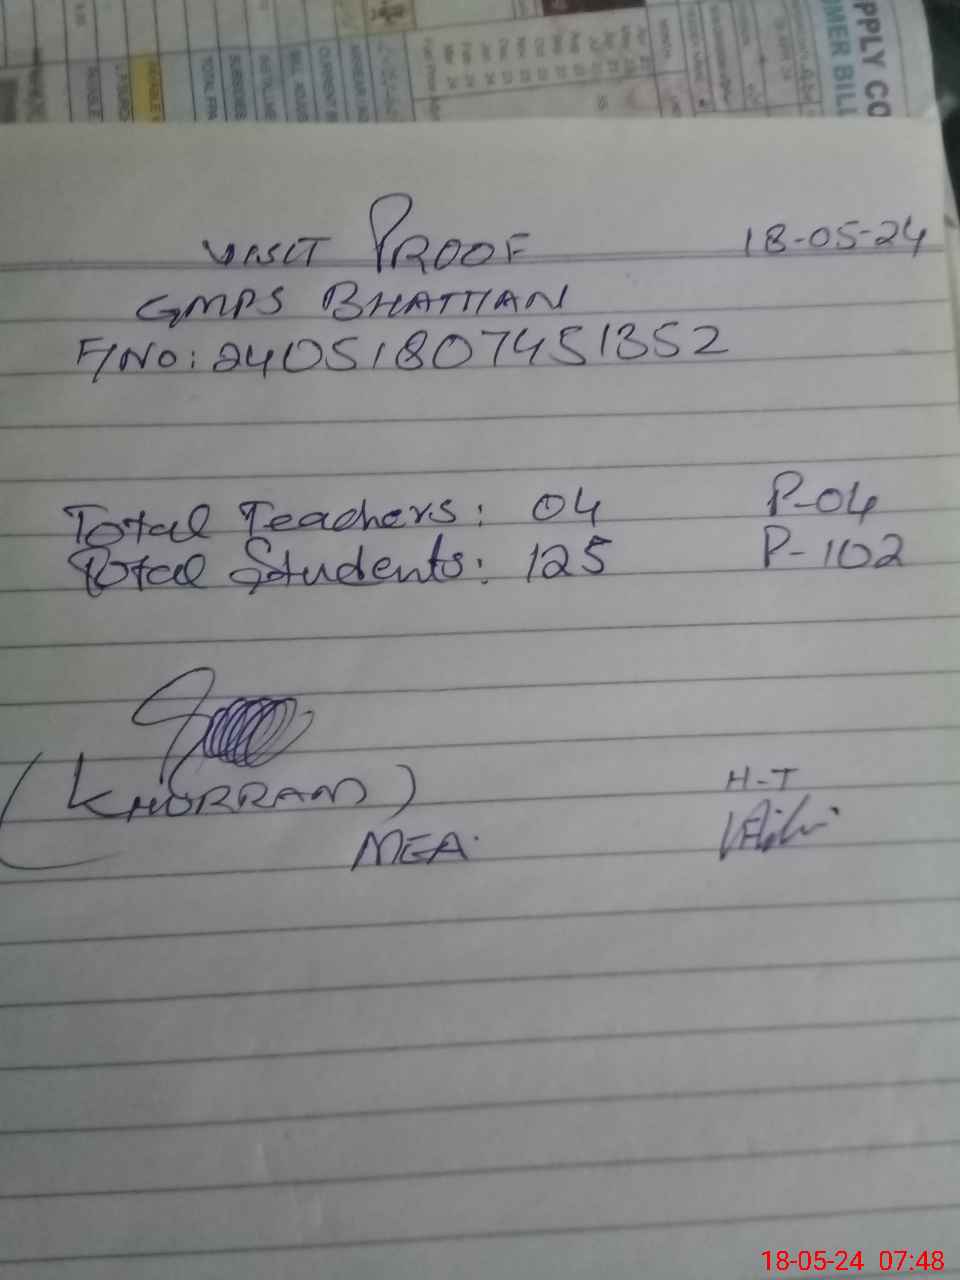 PPLY CO
OMER BILL
VISIT PROOF 18-05-24
GMPS BHATTIAN
F/NO: 24051807451352
Total Teachers: 04 P-04
Total Students: 125 P-102
(KHURRAM)
H-T
MEA.
18-05-24 07:48